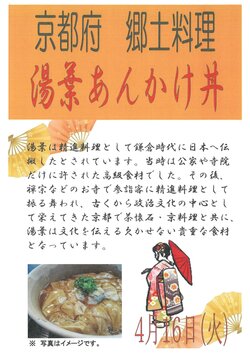 京都府 郷土料理
湯葉あんかけ丼
湯葉は精進料理として鎌倉時代に日本へ伝
搬したとされています。当時は公家や寺院
だけに許された高級食材でした。その後、
禅宗などのお寺で参詣客に精進料理として
振る舞われ、古くから政治文化の中心とし
て栄えてきた京都で茶懐石・京料理と共に、
湯葉は文化を伝える欠かせない貴重な食材
となっています。
4月16日(火)
※ 写真はイメージです。